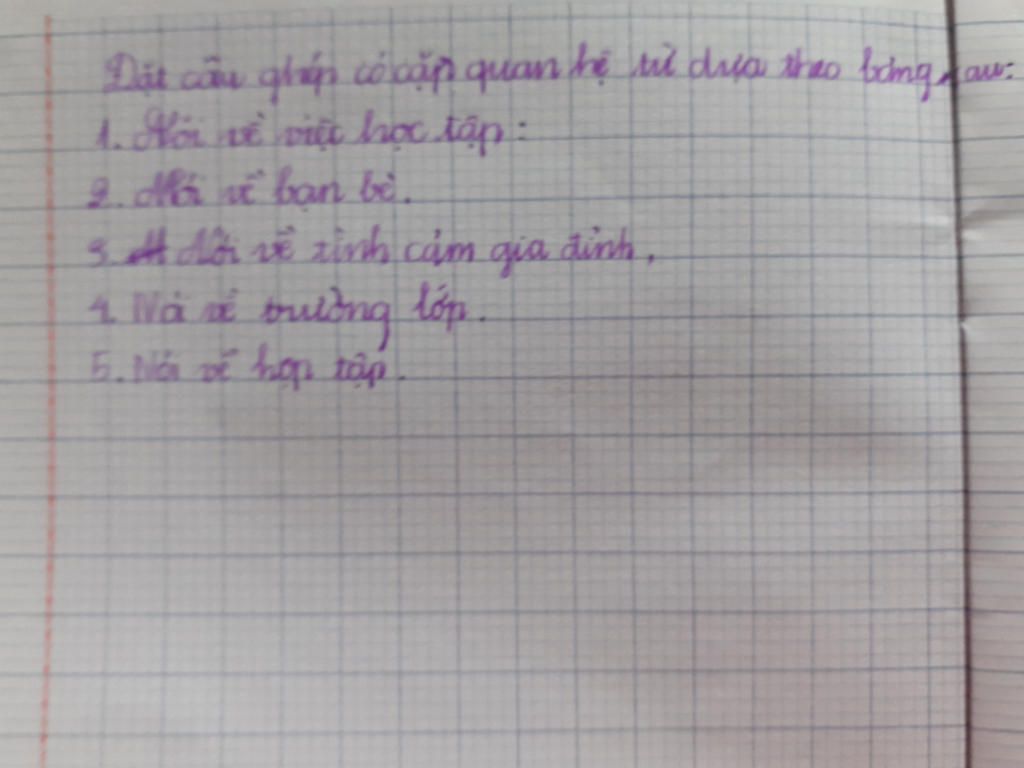 Đặt câu ghép có cặp quan hệ từ dựa theo bảng sau:
1. Nói về việc học tập:
2. Nói về bạn bè.
3. Nói về tình cảm gia đình.
4. Nói về trường lớp.
5. Nói về họp tập.